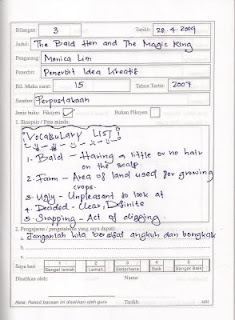 Bilangan: 3 Tarikh: 28-4-2009
Judul: The Bald Hen and The Magic King
Pengarang: Monica Lim
Penerbit: Penerbit Idea Kreatif
Bil. Muka surat: 15 Tahun Terbit: 2009
Sumber: Perpustakaan
Jenis buku: Fiksyen ✓ Bukan Fiksyen
1. Sinopsis / Peta minda
VOCABULARY LIST
1. Bald - Having a little or no hair
on the scalp.
2. Farm - Area of land used for growing
crops.
3. Ugly - Unpleasant to look at
4. Decided - Clear, Definite
5. Snapping - Act of
2. Pengajaran / pengetahuan yang saya dapati:
a. Janganlah kita bersifat angkuh dan bongkak
b.
c.
Saya beri 1 2 3 4 5
Sangat lemah Lemah Sederhana Baik Sangat Baik
Disahkan oleh: Nama:
Nota: Rekod bacaan ini disahkan oleh guru Tarikh: